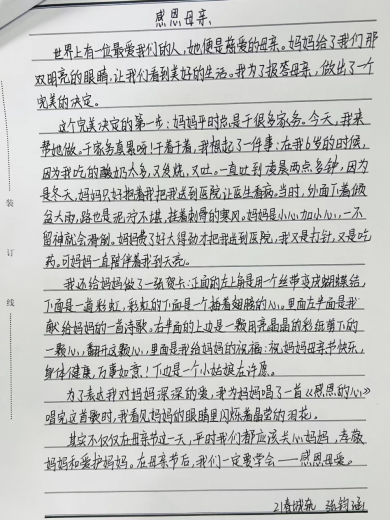 感恩母亲
世界上有一位最爱我们的人,她便是慈爱的母亲。妈妈给了我们那
双明亮的眼睛,让我们看到美好的生活。我为了报答母亲,做出了一个
完美的决定。
这个完美决定的第一步:妈妈平时总是干很多家务。今天,我来
帮她做。干家务真累呀!干着干着,我想起了一件事:在我6岁的时候,
因为我吃的酸奶太多,又发烧,又吐。一直吐到凌晨两点多钟,因为
是冬天,妈妈只好抱着我把我送到医院让医生看病。当时,外面下着倾
盆大雨,路也是泥泞不堪,挂着刺骨的寒风。妈妈是小心加小心,一不
留神就会滑倒。妈妈费了好大得劲才把我送到医院,我又是打针,又是吃
药。可妈妈一直陪伴着我到天亮。
我还给妈妈做了一张贺卡:正面的左上角是用一个丝带变成蝴蝶结,
下面是一道彩虹,彩虹的下面是一个插着翅膀的心。里面左半面是我
献给妈妈的一首诗歌。右半面的上边是一颗用亮晶晶的彩纸剪下的
一颗心,翻开这颗心,里面是我给妈妈的祝福:祝妈妈母亲节快乐,
身体健康,万事如意!下边是一个小姑娘在许愿。
为了表达我对妈妈深深的爱,我为妈妈唱了一首《感恩的心》
唱完这首歌时,我看见妈妈的眼睛里闪烁着晶莹的泪花。
其实不仅仅在母亲节这一天,平时我们都应该关心妈妈,孝敬
妈妈和爱护妈妈。在母亲节后,我们一定要学会——感恩母爱。
装
订
线